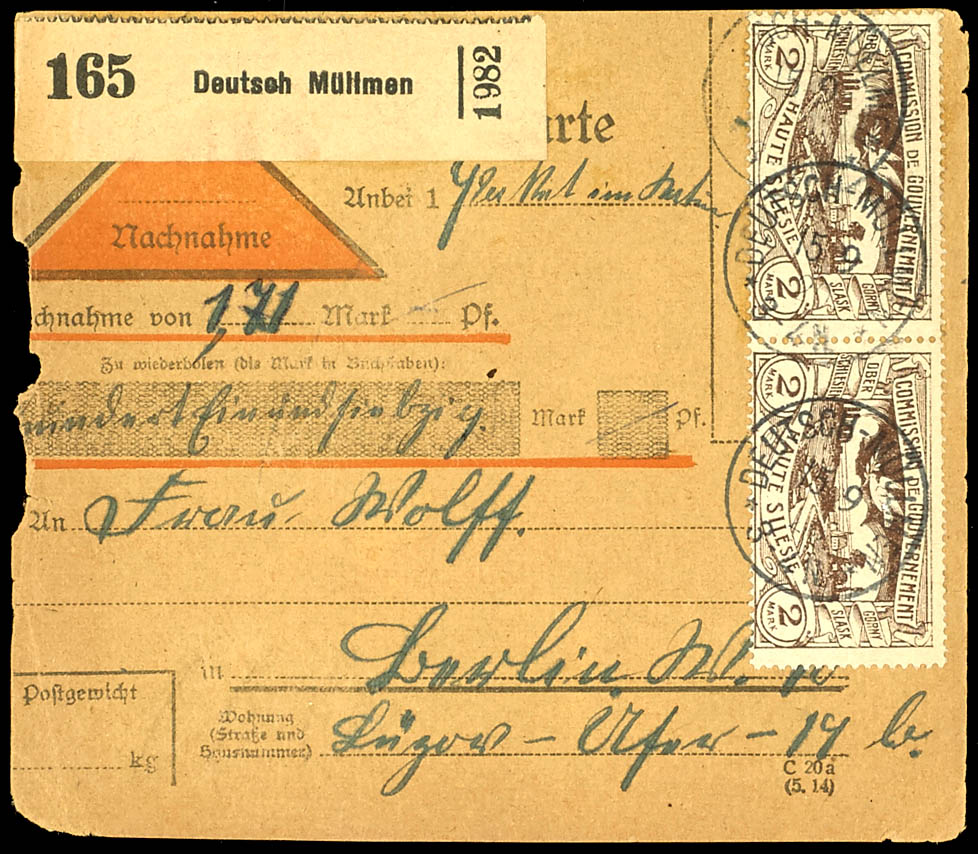 165 Deutsch Müllmen 1982
arte
Anbei 1
Nachnahme
chnahme von 1,71 Mark Pf.
Zu wiederholen (die Mark in Buchstaben):
hundert Einundsiebzig. Mark Pf.
An Frau Wolff.
in Berlin W. 10
Postgewicht
kg
Wohnung
(Straße und
Hausnummer)
Lüzow-Ufer-17 b.
C 20a
(5. 14)
COMMISSION DE GOUVERNEMENT
OBER SCHLESIEN
HAUTE SILESIE
GÓRNY ŚLĄSK
2 MARK
2 MARK
DEUTSCH-MÜLLMEN
15 9
COMMISSION DE GOUVERNEMENT
OBER SCHLESIEN
HAUTE SILESIE
GÓRNY ŚLĄSK
2 MARK
2 MARK
DEUTSCH-MÜLLMEN